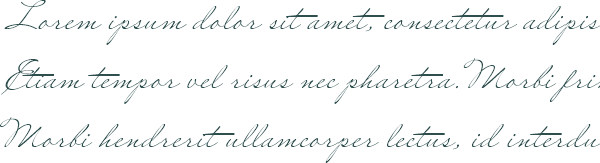 Lorem ipsum dolor sit amet, consectetur adipis
Etiam tempor vel risus nec pharetra. Morbi frin
Morbi hendrerit ullamcorper lectus, id interdu